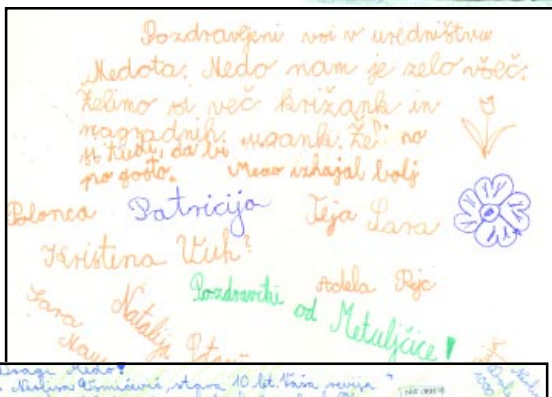 Pozdravljeni vsi v uredništvu
Medota. Medo nam je zelo všeč.
Želimo si več križank in
nagradnih ugank. Želimo
si tudi, da bi Medo izhajal bolj
po gosto.
Polonca Patricija Teja Lara
Kristina Vuh?
Adela Rejc
Pozdravčki od Metuljčice!
Sara
Natalija
Dragi Medo!
stara 10 let. Vaša revija